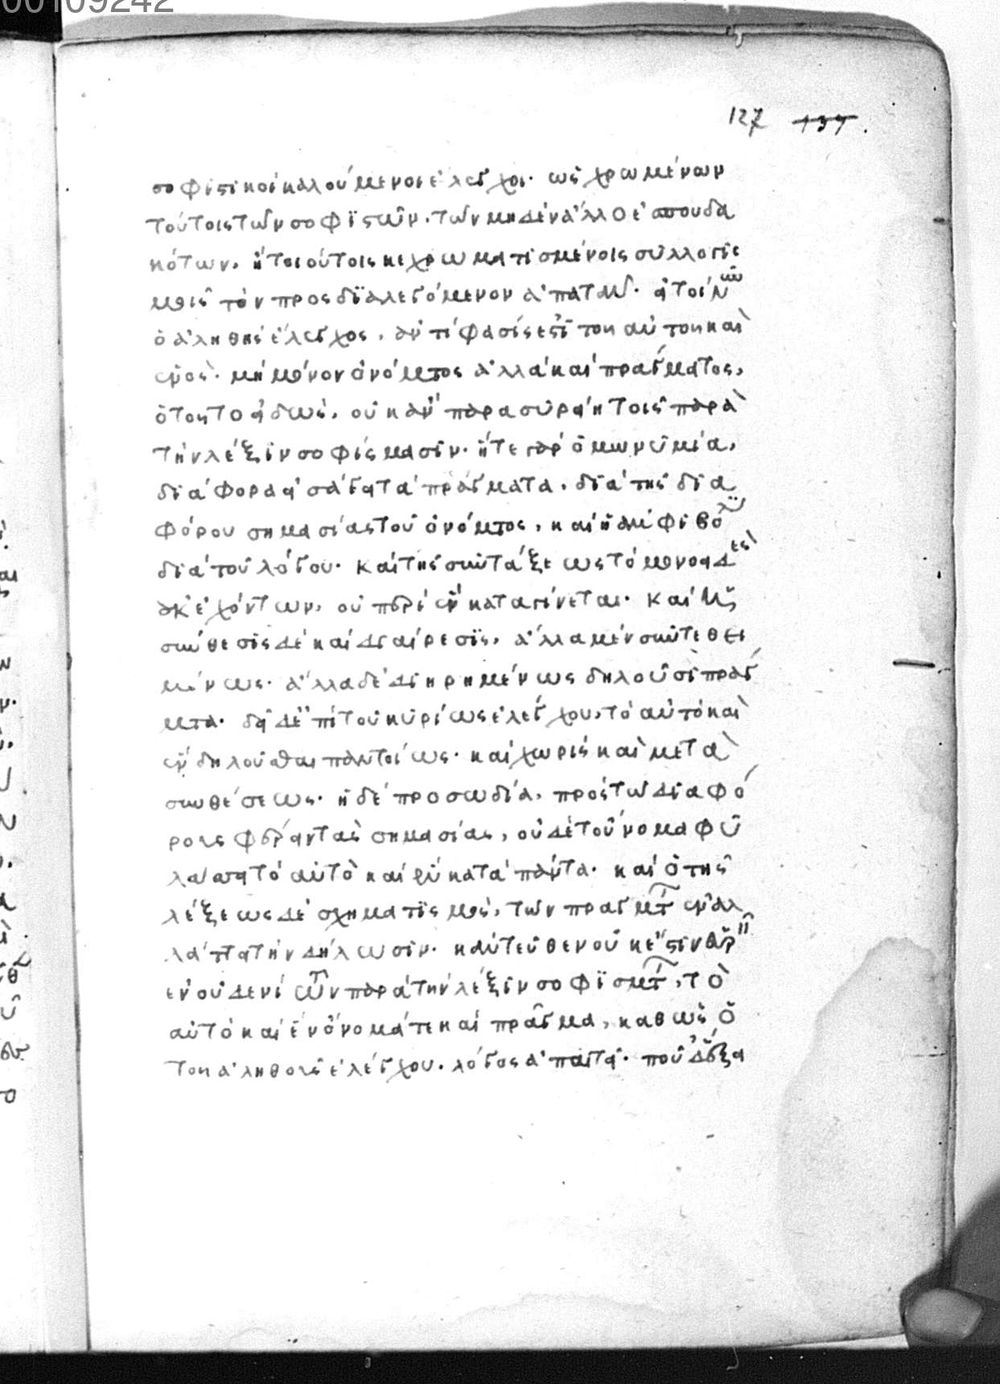 00109242
127 137.
σοφιστικοὶ καλούμενοι ἔλεγχοι. ὡς χρωμένων
τούτοις τῶν σοφϊστῶν. τῶν μηδὲν ἄλλο ἐσπουδα
κότων. ἢ τοιούτοις κεχρωματισμένοις συλλογις
μοῖς τὸν προσδϊαλεγόμενον ἀπατᾶν.
ὁ ἀληθὴς ἔλεγχος. ἀντίφασίς ἐστι τοῦ αὐτοῦ καὶ
ἑνός. μὴ μόνον ὀνόματος ἀλλὰ καὶ πράγματος.
οὐκ ἂν παρὰ τοῖς παρὰ
τὴν λέξιν σοφίσμασιν. ἥτε γὰρ ὁμωνυμία.
δϊάφορα εἰσάγει τὰ πράγματα. δϊὰ τῆς δϊα
φόρου σημασίας τοῦ ὀνόματος. καὶ ἡ ἀμφιβολ
δϊὰ τοῦ λόγου. καὶ τῆς συντάξεως τὸ μονοειδὲς
οὐκ ἐχόντων. οὐ περὶ ἓν καταγίνεται. καὶ ἡ
σύνθεσϊς δὲ καὶ δϊαίρεσϊς. ἄλλα μὲν συντεθει
μένως. ἄλλα δὲ διηρημένως δηλοῦσι πράγ
ματα. δεῖ δὲ ἐπὶ τοῦ κυρίως ἐλέγχου. τὸ αὐτὸ καὶ
ἓν δηλοῦσθαι παντοίως. καὶ χωρὶς καὶ μετὰ
συνθέσεως. ἡ δὲ προσωδία. πρὸς τῶ διαφό
ρους φέρειν τὰς σημασίας, οὐδὲ τοὔνομα φυ
λάττει τὸ αὐτὸ καὶ ἓν κατὰ πάντα. καὶ ὁ τῆς
λέξεως δὲ σχηματϊσμὸς. τῶν πραγμάτ ἐναλ
λάττει τὴν δήλωσιν. κἀντεῦθεν οὐκ ἔστιν
ἐν οὐδενὶ τῶν παρὰ τὴν λέξιν σοφϊσμάτ, τὸ
αὐτὸ καὶ ἓν ὄνομά τε καὶ πρᾶγμα. καθὼς ὁ
τοῦ ἀληθοῦς ἐλέγχου. λόγος ἀπαιτεῖ.